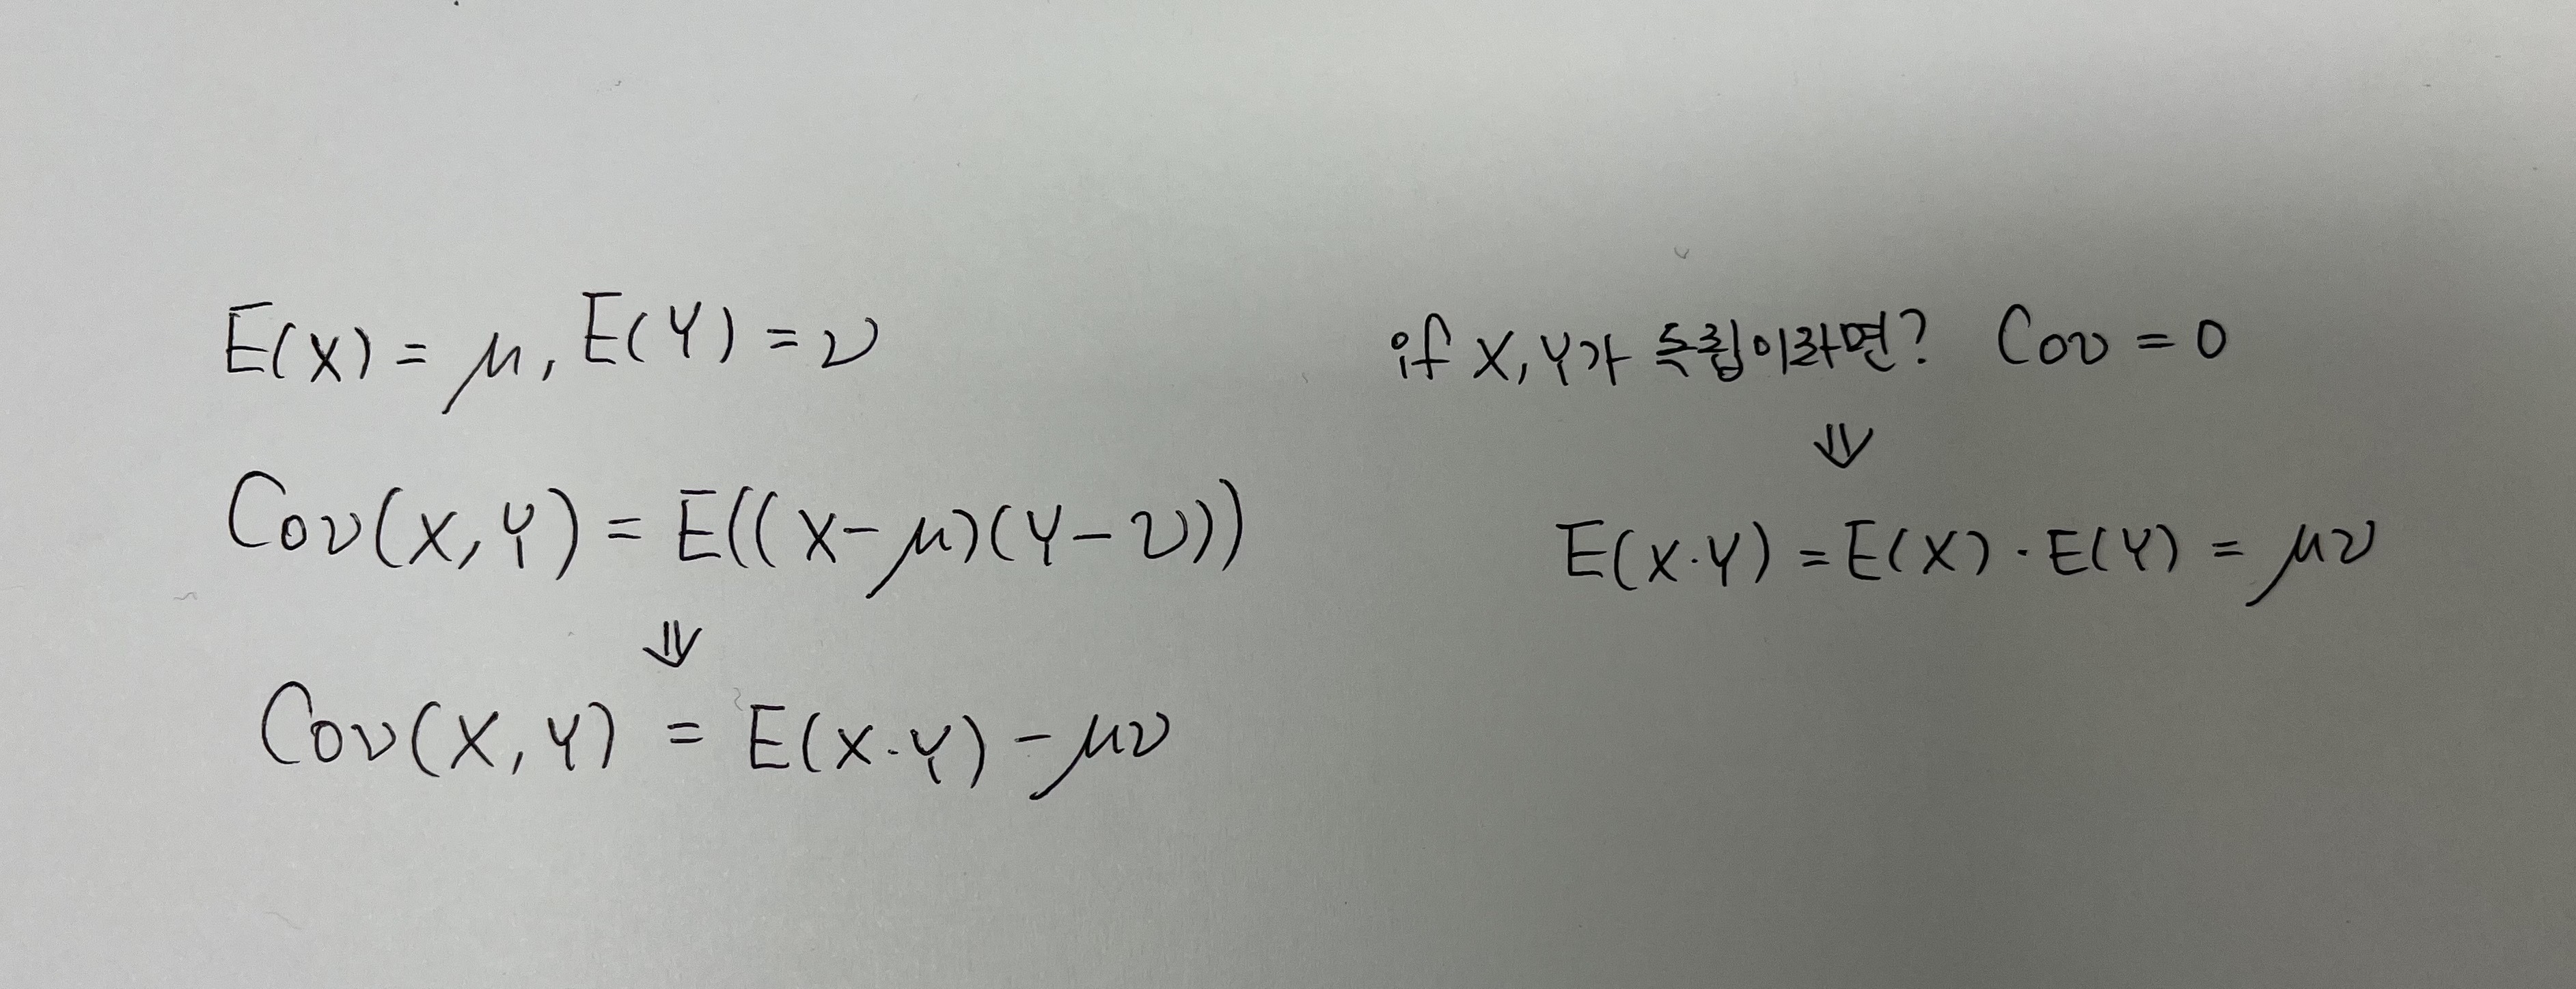 E(X) = μ, E(Y) = ν
Cov(X, Y) = E((X-μ)(Y-ν))
⇓
Cov(X, Y) = E(X·Y) - μν
if X, Y가 독립이라면? Cov = 0
⇓
E(X·Y) = E(X)·E(Y) = μν